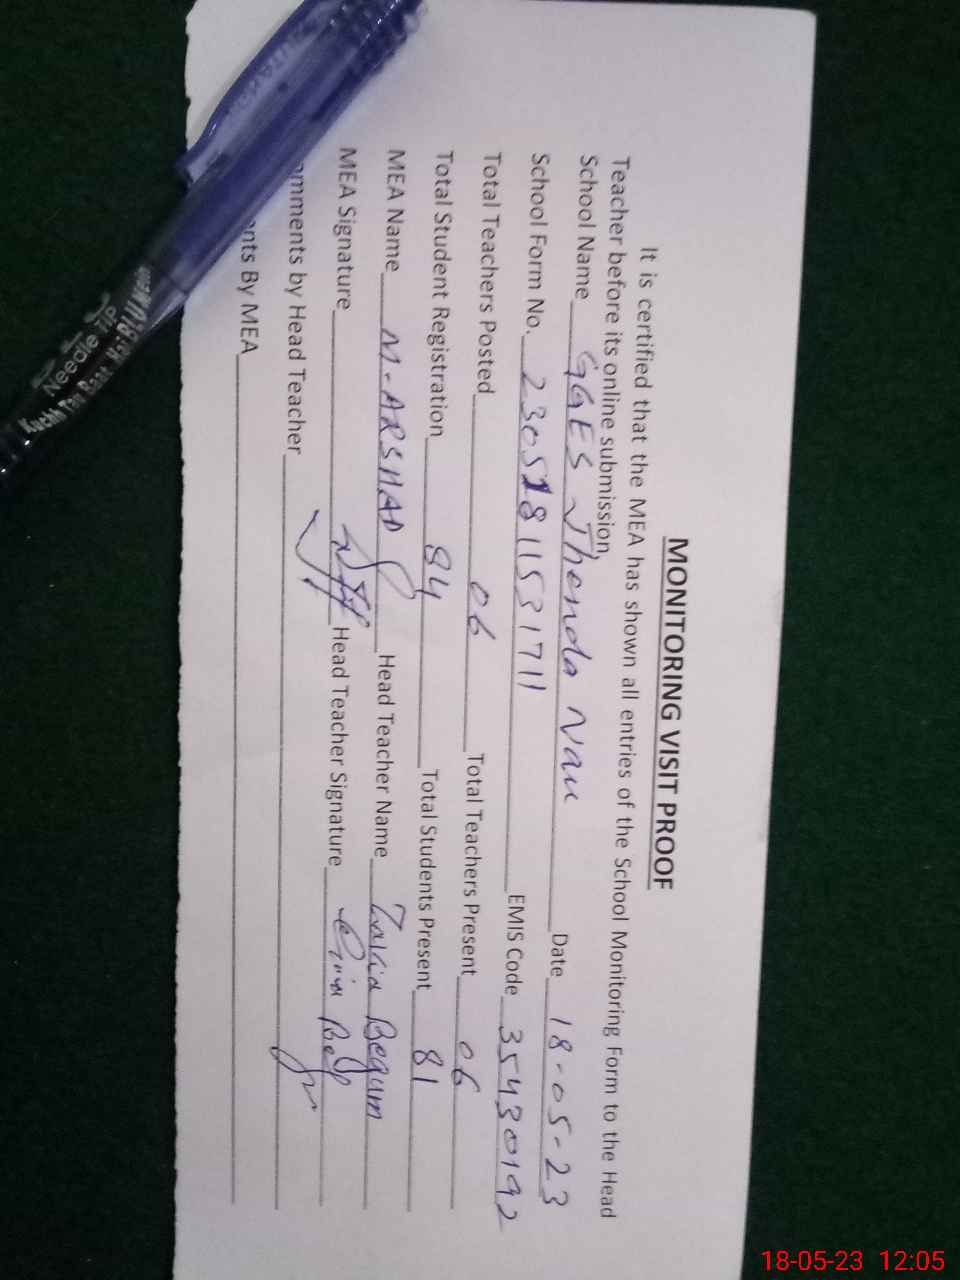 MONITORING VISIT PROOF
It is certified that the MEA has shown all entries of the School Monitoring Form to the Head
Teacher before its online submission.
School Name GGES Jhenda Nau Date 18-05-23
School Form No. 23051811531711 EMIS Code 35430192
Total Teachers Posted 06 Total Teachers Present 06
Total Student Registration 84 Total Students Present 81
MEA Name M-ARSHAD Head Teacher Name Zakia Begum
MEA Signature Head Teacher Signature
mments by Head Teacher
nts By MEA
Needle Tip
18-05-23 12:05